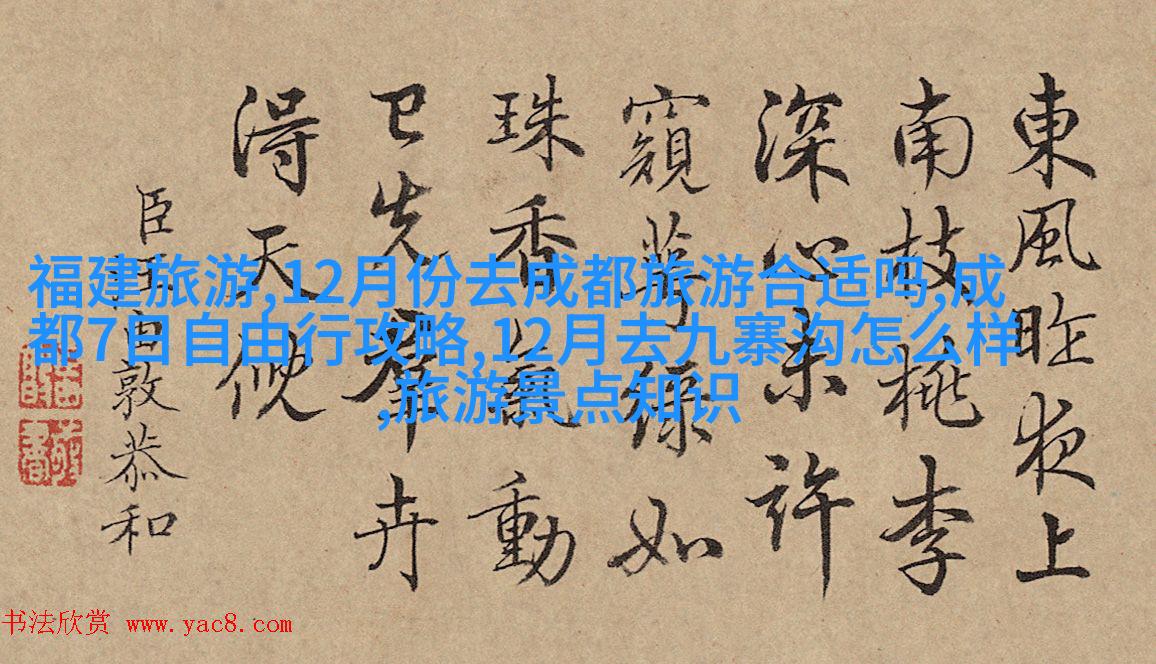 東風昨夜上
南枝桃李
深心未許
窺萼綠如
珠香氣動
已先羣卉
得天
臣汪由敦恭和
福建旅游,12月份去成都旅游合适吗,成
都7日自由行攻略,12月去九寨沟怎么样
,旅游景点知识
书法欣赏 www.yac8.com